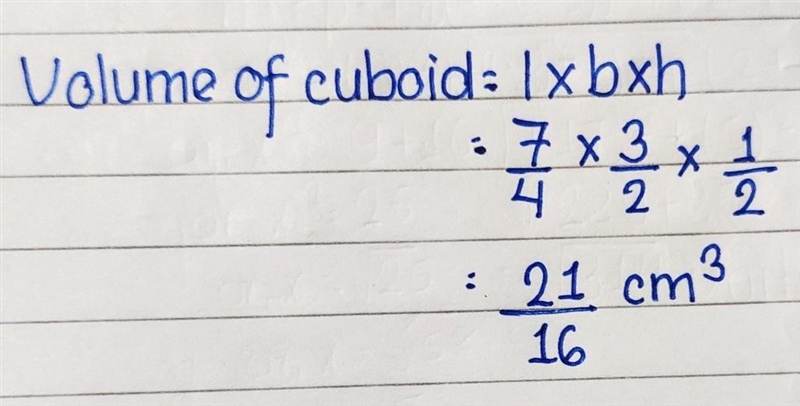 Volume of cuboid = l x b x h
= 7/4 x 3/2 x 1/2
= 21/16 cm³